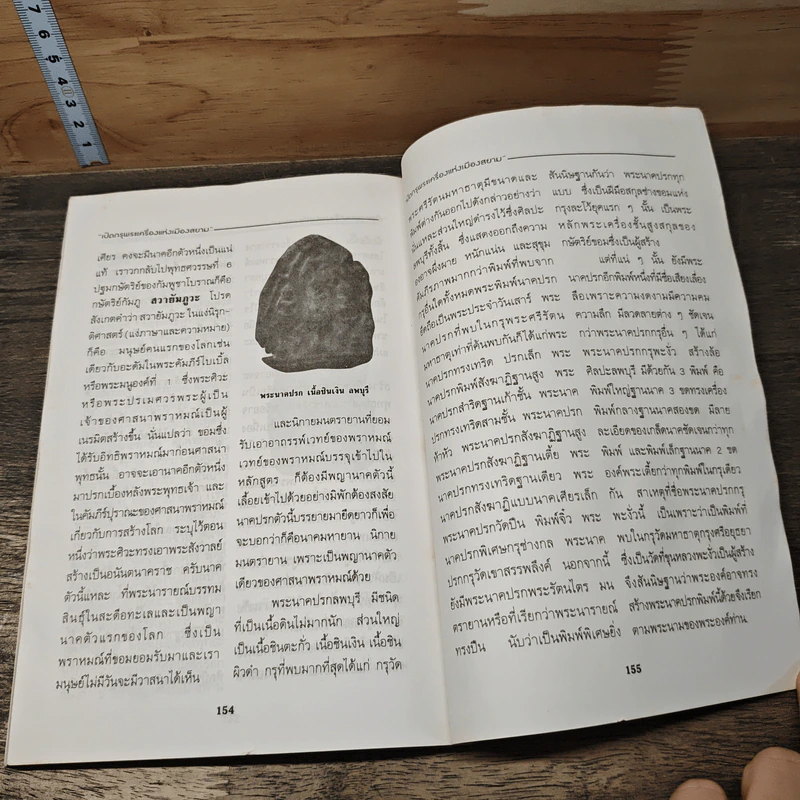 "เปิดกรุพระเครื่องแห่งเมืองสยาม"
เศียร คงจะมีนาคอีกตัวหนึ่งเป็นแน่
แท้ เราวกกลับไปพุทธศวรรษที่ 6
ปฐมกษัตริย์ของกัมพูชาโบราณก็คือ
กษัตริย์กัมภู สวายัมภูวะ โปรด
สังเกตคำว่า สวายัมภูวะ ในแง่นิรุก-
ติศาสตร์ (แง่ภาษาและความหมาย)
ก็คือ มนุษย์คนแรกของโลกเช่น
เดียวกับอะดัมในพระคัมภีร์ไบเบิ้ล
หรือพระมนูองค์ที่ 1 ซึ่งพระศิวะ
หรือพระปรเมศวรพระผู้เป็น
เจ้าของศาสนาพราหมณ์เป็นผู้
เนรมิตสร้างขึ้น นั่นแปลว่า ขอมซึ่ง
ได้รับอิทธิพราหมณ์มาก่อนศาสนา
พุทธนั้น อาจจะเอานาคอีกตัวหนึ่ง
มาปรกเบื้องหลังพระพุทธเจ้า และ
ในคัมภีร์ปุราณะของศาสนาพราหมณ์
เกี่ยวกับการสร้างโลก ระบุไว้ตอน
หนึ่งว่าพระศิวะทรงเอาพระสังวาลย์
สร้างเป็นอนันตนาคราช ครับนาค
ตัวนี้แหละ ที่พระนารายณ์บรรทม
สินธุ์ในสะดือทะเลและเป็นพญา
นาคตัวแรกของโลก ซึ่งเป็น
พราหมณ์ที่ขอมยอมรับมาและเรา
มนุษย์ไม่มีวันจะมีวาสนาได้เห็น
พระนาคปรก เนื้อชินเงิน ลพบุรี
และนิกายมนตรายานที่ยอม
รับเอาอาถรรพ์เวทย์ของพราหมณ์
เวทย์ของพราหมณ์บรรจุเข้าไปใน
หลักสูตร ก็ต้องมีพญานาคตัวนี้
เลื้อยเข้าไปด้วยอย่างมิพักต้องสงสัย
นาคปรกตัวนี้บรรยายมายืดยาวก็เพื่อ
จะบอกว่าก็คือนาคมหายาน นิกาย
มนตรายาน เพราะเป็นพญานาคตัว
เดียวของศาสนาพราหมณ์ด้วย
พระนาคปรกลพบุรี มีชนิด
ที่เป็นเนื้อดินไม่มากนัก ส่วนใหญ่
เป็นเนื้อชินตะกั่ว เนื้อชินเงิน เนื้อชิน
ผิวดำ กรุที่พบมากที่สุดได้แก่ กรุวัด
154
"เปิดกรุพระเครื่องแห่งเมืองสยาม"
พระศรีรัตนมหาธาตุมีขนาดและ
พิมพ์ต่างกันออกไปดังกล่าวอย่างว่า
นั่นแหละส่วนใหญ่ดำรงไว้ซึ่งศิลปะ
ลพบุรีทั้งสิ้น ซึ่งแสดงออกถึงความ
องอาจผึ่งผาย หนักแน่น และสุขุม
คัมภีรภาพมากกว่าพิมพ์ที่พบจาก
กรุอื่นใดทั้งหมดพระพิมพ์นาคปรก
ยึดถือเป็นพระประจำวันเสาร์ พระ
นาคปรกที่พบในกรุพระศรีรัตน
มหาธาตุเท่าที่ค้นพบกันก็ได้แก่พระ
นาคปรกทรงเทริด ปรกเล็ก พระ
นาคปรกพิมพ์สังฆาฏิฐานสูง พระ
ปรกสำริดฐานเก้าชั้น พระนาค
ปรกทรงเทริดสามชั้น พระนาคปรก
ห้าหัว พระนาคปรกสังฆาฏิฐานสูง
พระนาคปรกสังฆาฏิฐานเตี้ย พระ
นาคปรกทรงเทริดฐานเดียว พระ
นาคปรกสังฆาฏิแบบนาคเศียรเล็ก
พระนาคปรกวัดปืน พิมพ์จิ๋ว พระ
นาคปรกพิเศษกรุช่างกล พระนาค
ปรกกรุวัดเขาสรรพลึงค์ นอกจากนี้
ยังมีพระนาคปรกพระรัตนไตร มน
ตรายานหรือที่เรียกว่าพระนารายณ์
ทรงปืน นับว่าเป็นพิมพ์พิเศษยิ่ง
สันนิษฐานกันว่า พระนาคปรกทุก
แบบ ซึ่งเป็นฝีมือสกุลช่างขอมแห่ง
กรุงละโว้ยุคแรก ๆ นั้น เป็นพระ
หลักพระเครื่องชั้นสูงสกุลของ
กษัตริย์ขอมซึ่งเป็นผู้สร้าง
แต่ที่แน่ ๆ นั้น ยังมีพระ
นาคปรกอีกพิมพ์หนึ่งที่มีชื่อเสียงเลื่อง
ลือเพราะความงดงามมีความคม
ความลึก มีลวดลายต่าง ๆ ชัดเจน
กว่าพระนาคปรกกรุอื่น ๆ ได้แก่
พระนาคปรกกรุพะงั่ว สร้างล้อ
ศิลปะลพบุรี มีด้วยกัน 3 พิมพ์ คือ
พิมพ์ใหญ่ฐานนาค 3 ขดทรงเครื่อง
พิมพ์กลางฐานนาคสองขด มีลาย
ละเอียดของเกล็ดนาคชัดเจนกว่าทุก
พิมพ์ และพิมพ์เล็กฐานนาค 2 ขด
องค์พระเตี้ยกว่าทุกพิมพ์ในกรุเดียว
กัน สาเหตุที่ชื่อพระนาคปรกกรุ
พะงั่วนี้ เป็นเพราะว่าเป็นพิมพ์ที่
พบในกรุวัดมหาธาตุกรุงศรีอยุธยา
ซึ่งเป็นวัดที่ขุนหลวงพะงั่วเป็นผู้สร้าง
จึงสันนิษฐานว่าพระองค์อาจทรง
สร้างพระนาคปรกพิมพ์นี้ด้วยจึงเรียก
ตามพระนามของพระองค์ท่าน
155
7 6 5 4 3 2 1